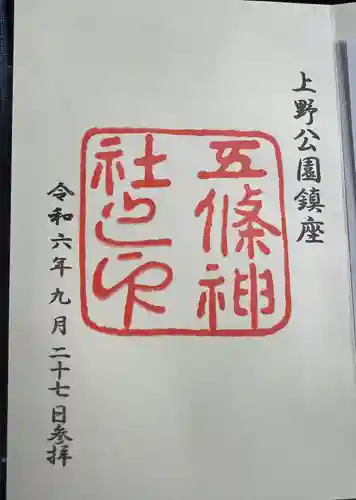 上野公園鎮座
五條神
社之印
令和六年九月二十七日参拝